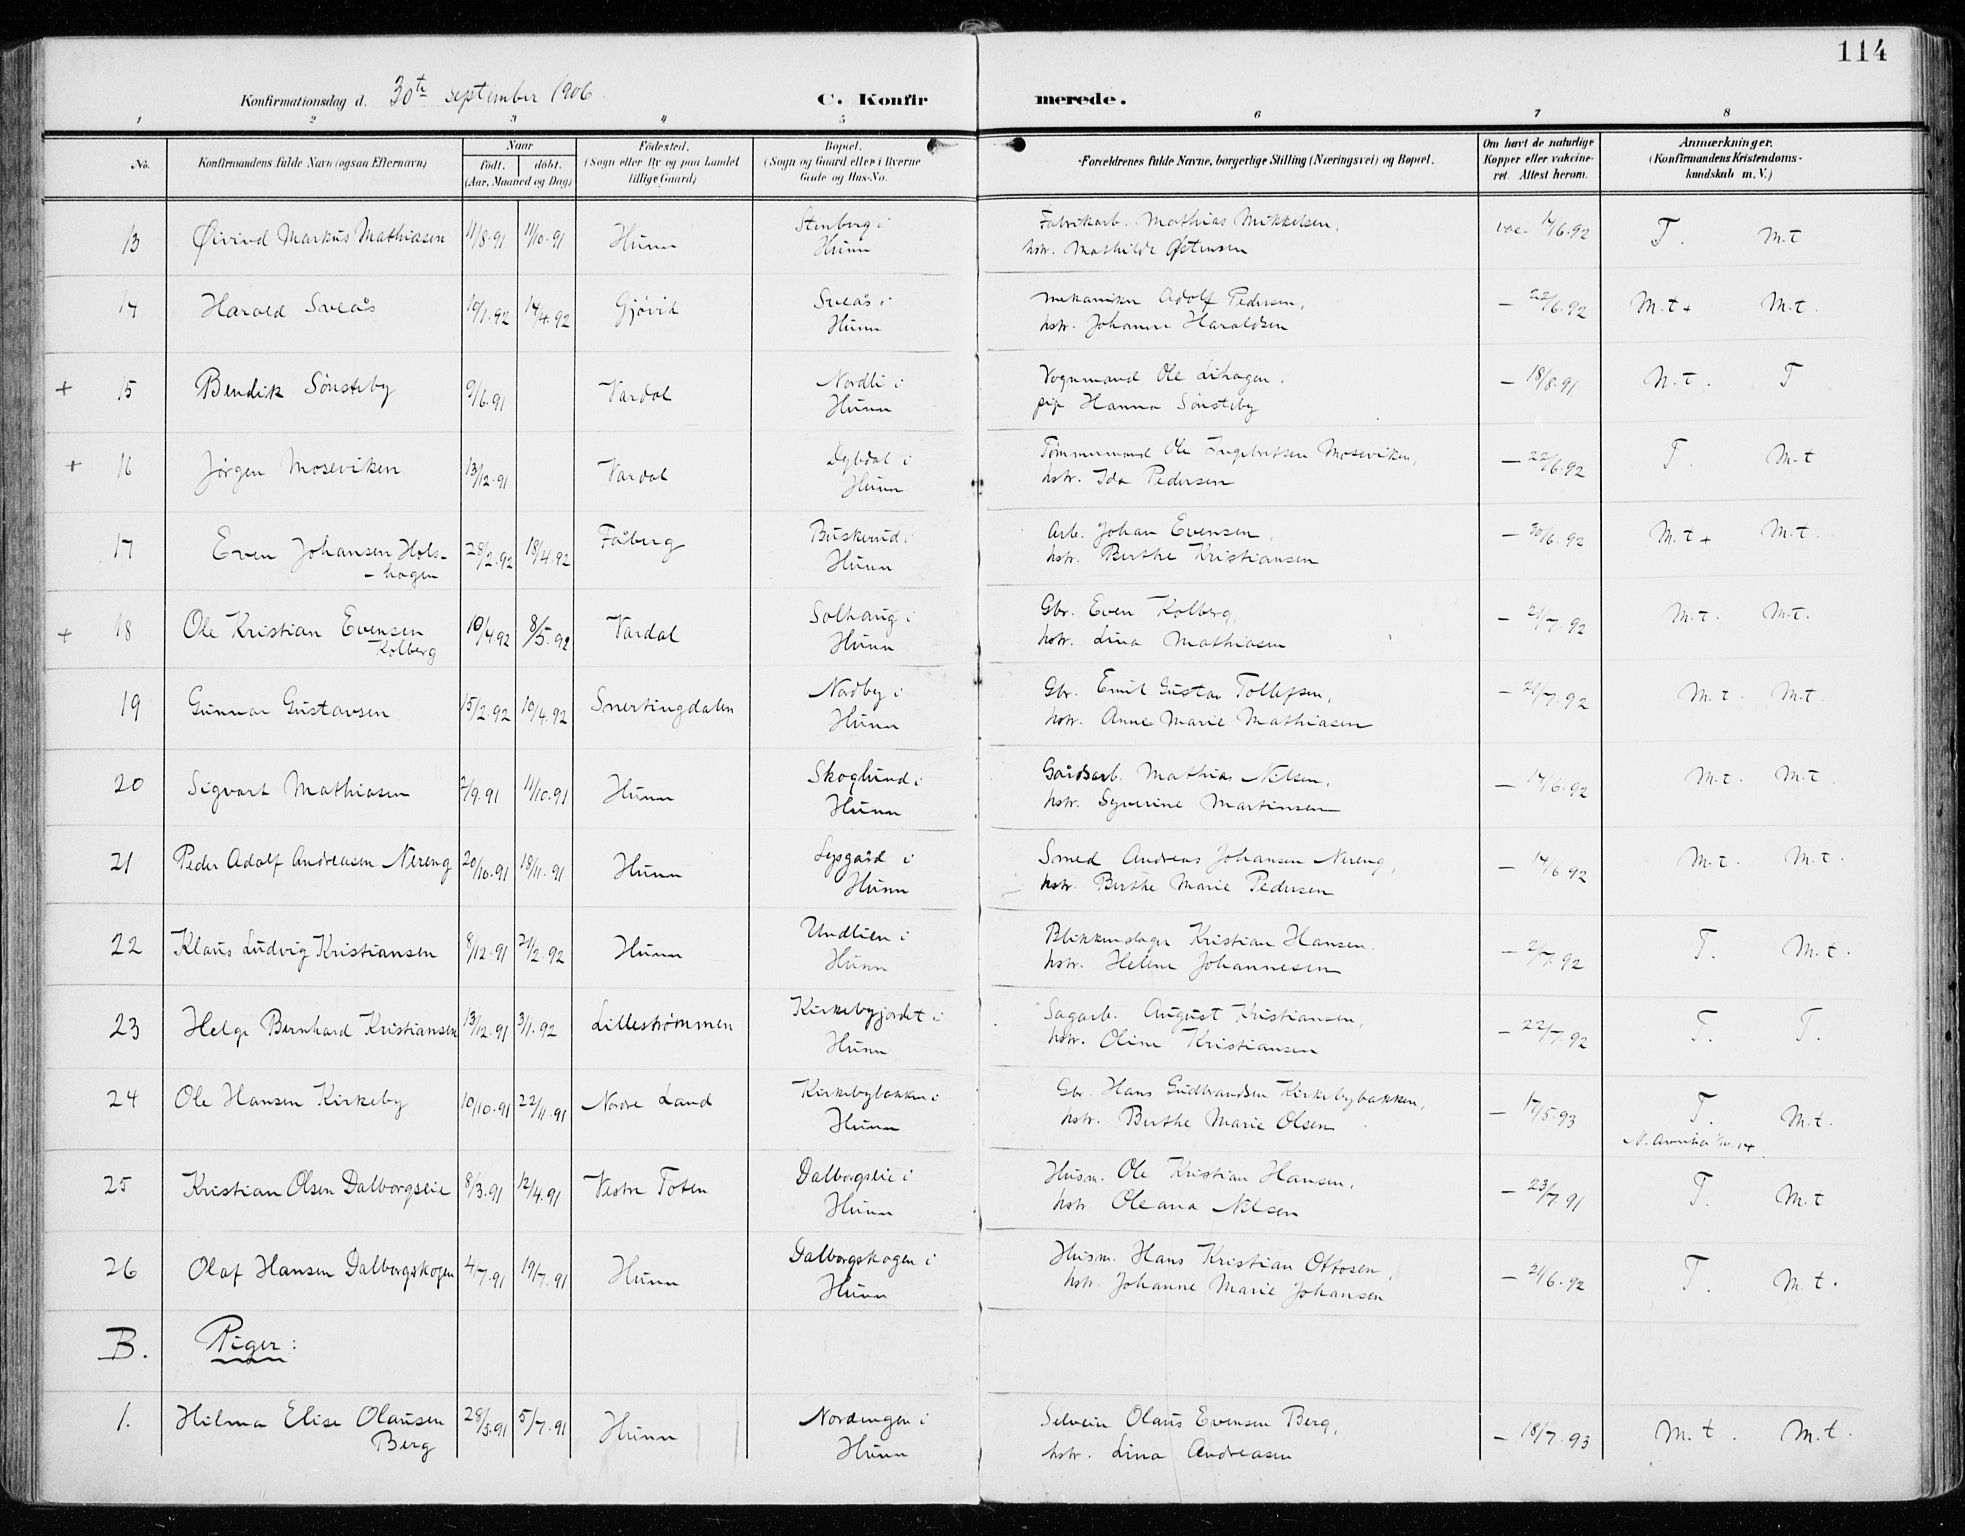 114
Konfirmationsdag d. 30te september 1906
C. Konfirmerede.
1 2 3 4 5 6 7 8
No.
Konfirmandens fulde Navn (ogsaa Efternavn)
Naar
født. døbt.
(Aar, Maaned og Dag)
Fødested.
(Sogn eller By og paa Landet
tillige Gaard)
Bopæl.
(Sogn og Gaard eller i Byerne
Gade og Hus-No.
Forældrenes fulde Navne, borgerlige Stilling (Næringsvei) og Bopæl.
Om havt de naturlige
Kopper eller vakcine-
ret. Attest herom.
Anmærkninger.
(Konfirmandens Kristendoms-
kundskab m. V.)
13 Øivind Markus Mathiasen 11/8.91 11/10.91 Hunn Stenberg i Fabrikarb. Mathias Mikkelsen, vac. 14/6.92 T. M.t
Hunn hstr. Mathilde Østensen
14 Harald Sveås 19/1.92 14/4.92 Gjøvik Sveås i Mekaniker Adolf Pedersen, — 22/6.92 M.t+ M.t.
Hunn hstr. Johanne Haraldsen
+ 15 Bendik Sønsteby 9/6.91 Vardal Nordli i Vognmand Ole Lihagen, — 18/8.91 M.t. T
Hunn pige Hanna Sønsteby
+ 16 Jørgen Moseviken 13/12.91 Vardal Dybdal i Tømmermand Ole Ingebretsen Moseviken, — 22/6.92 T. M.t
Hunn hstr. Ida Pedersen
17 Even Johansen Hols- 28/2.92 18/4.92 Fåberg Buskerud i Arb. Johan Evensen, — 30/6.92 M.t+ M.t.
-hagen Hunn hstr. Berthe Kristiansen
+ 18 Ole Kristian Evensen 10/4.92 8/5.92 Vardal Solhaug i Gbr. Even Kolberg, — 21/7.92 M.t. M.t.
Kolberg Hunn hstr. Lina Mathiasen
19 Gunnar Gustavsen 15/2.92 10/4.92 Snertingdalen Nordby i Gbr. Emil Gustav Tollefsen, — 21/7.92 M.t. M.t.
Hunn hstr. Anne Marie Mathiasen
20 Sigvart Mathiasen 2/9.91 11/10.91 Hunn Skoglund i Gårdsarb. Mathias Nilsen, — 14/6.92 M.t. M.t.
Hunn hstr. Syverine Martinsen
21 Peder Adolf Andreasen Nereng 20/10.91 18/11.91 Hunn Lysgård i Smed Andreas Johansen Nereng, — 14/6.92 M.t. M.t.
Hunn hstr. Berthe Marie Pedersen
22 Klaus Ludvig Kristiansen 8/12.91 21/2.92 Hunn Undlien i Blikkenslager Kristian Hansen. — 2/7.92 T. M.t.
Hunn hstr. Helene Johannesen
23 Helge Bernhard Kristiansen 13/12.91 3/1.92 Lillestrømmen Kirkebyjordet i Sagarb. August Kristiansen, — 22/7.92 T. T.
Hunn hstr. Oline Kristiansen
24 Ole Hansen Kirkeby 10/10.91 22/11.91 Nordre Land Kirkebybakken i Gbr. Hans Gudbrandsen Kirkebybakken, — 17/5.93 T. M.t.
Hunn hstr. Berthe Marie Olsen
N. Amerika
25 Kristian Olsen Dalborgseie 8/3.91 12/4.91 Vestre Toten Dalborgseie i Husm. Ole Kristian Hansen, — 23/7.91 T. M.t
Hunn hstr Oleana Nilsen
26 Olaf Hansen Dalborgskogen 4/7.91 19/7.91 Hunn Dalborgskogen i Husm. Hans Kristian Ottosen, — 21/6.92 T. M.t.
Hunn hstr. Johanne Marie Johansen
B. Piger:
1. Hilma Elise Olausen 28/5.91 5/7.91 Hunn Nordengen i Selveier Olaus Evensen Berg, — 18/7.93 M.t. M.t.
Berg Hunn hstr. Lina Andreasen